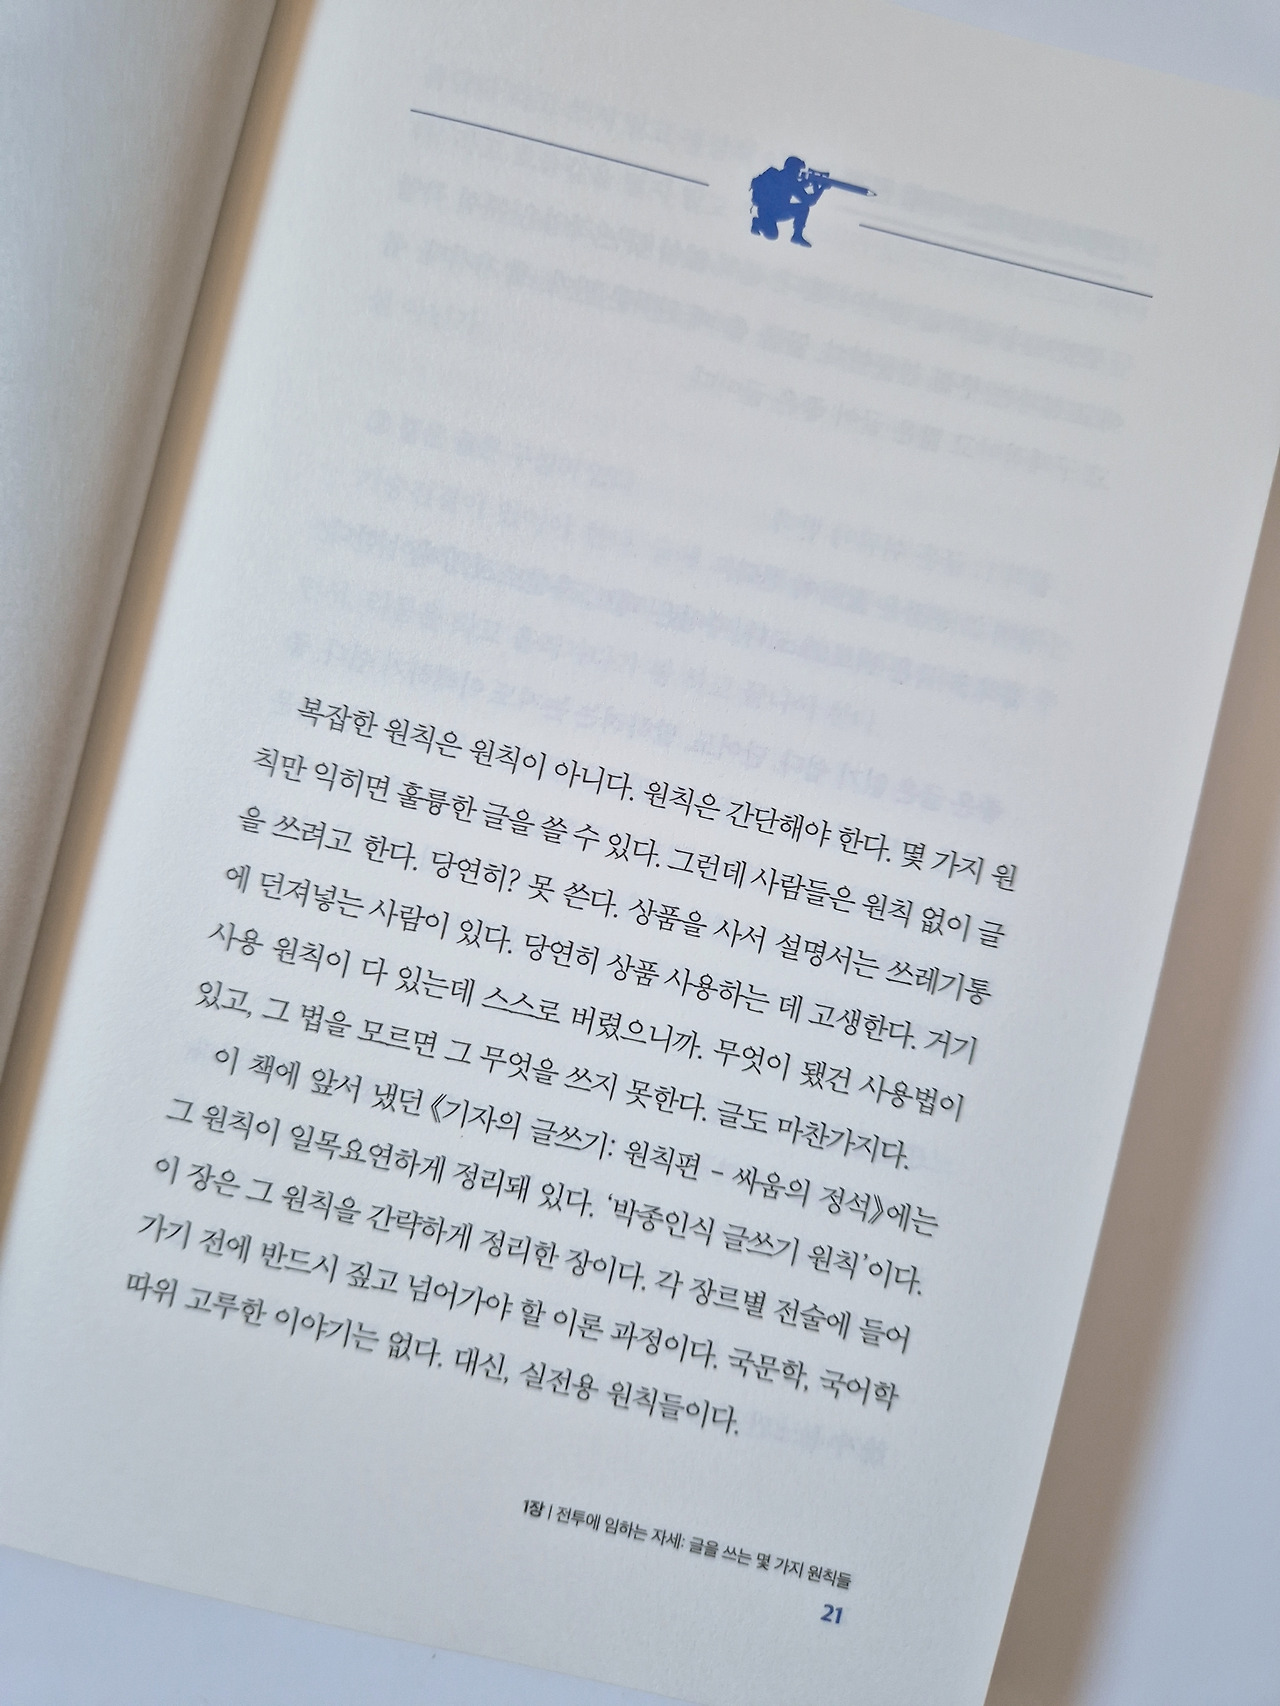 복잡한 원칙은 원칙이 아니다. 원칙은 간단해야 한다. 몇 가지 원
칙만 익히면 훌륭한 글을 쓸 수 있다. 그런데 사람들은 원칙 없이 글
을 쓰려고 한다. 당연히? 못 쓴다. 상품을 사서 설명서는 쓰레기통
에 던져넣는 사람이 있다. 당연히 상품 사용하는 데 고생한다. 거기
사용 원칙이 다 있는데 스스로 버렸으니까. 무엇이 됐건 사용법이
있고, 그 법을 모르면 그 무엇을 쓰지 못한다. 글도 마찬가지다.
이 책에 앞서 냈던 《기자의 글쓰기: 원칙편 – 싸움의 정석》에는
그 원칙이 일목요연하게 정리돼 있다. ‘박종인식 글쓰기 원칙’이다.
이 장은 그 원칙을 간략하게 정리한 장이다. 각 장르별 전술에 들어
가기 전에 반드시 짚고 넘어가야 할 이론 과정이다. 국문학, 국어학
따위 고루한 이야기는 없다. 대신, 실전용 원칙들이다.
1장 | 전투에 임하는 자세: 글을 쓰는 몇 가지 원칙들
21